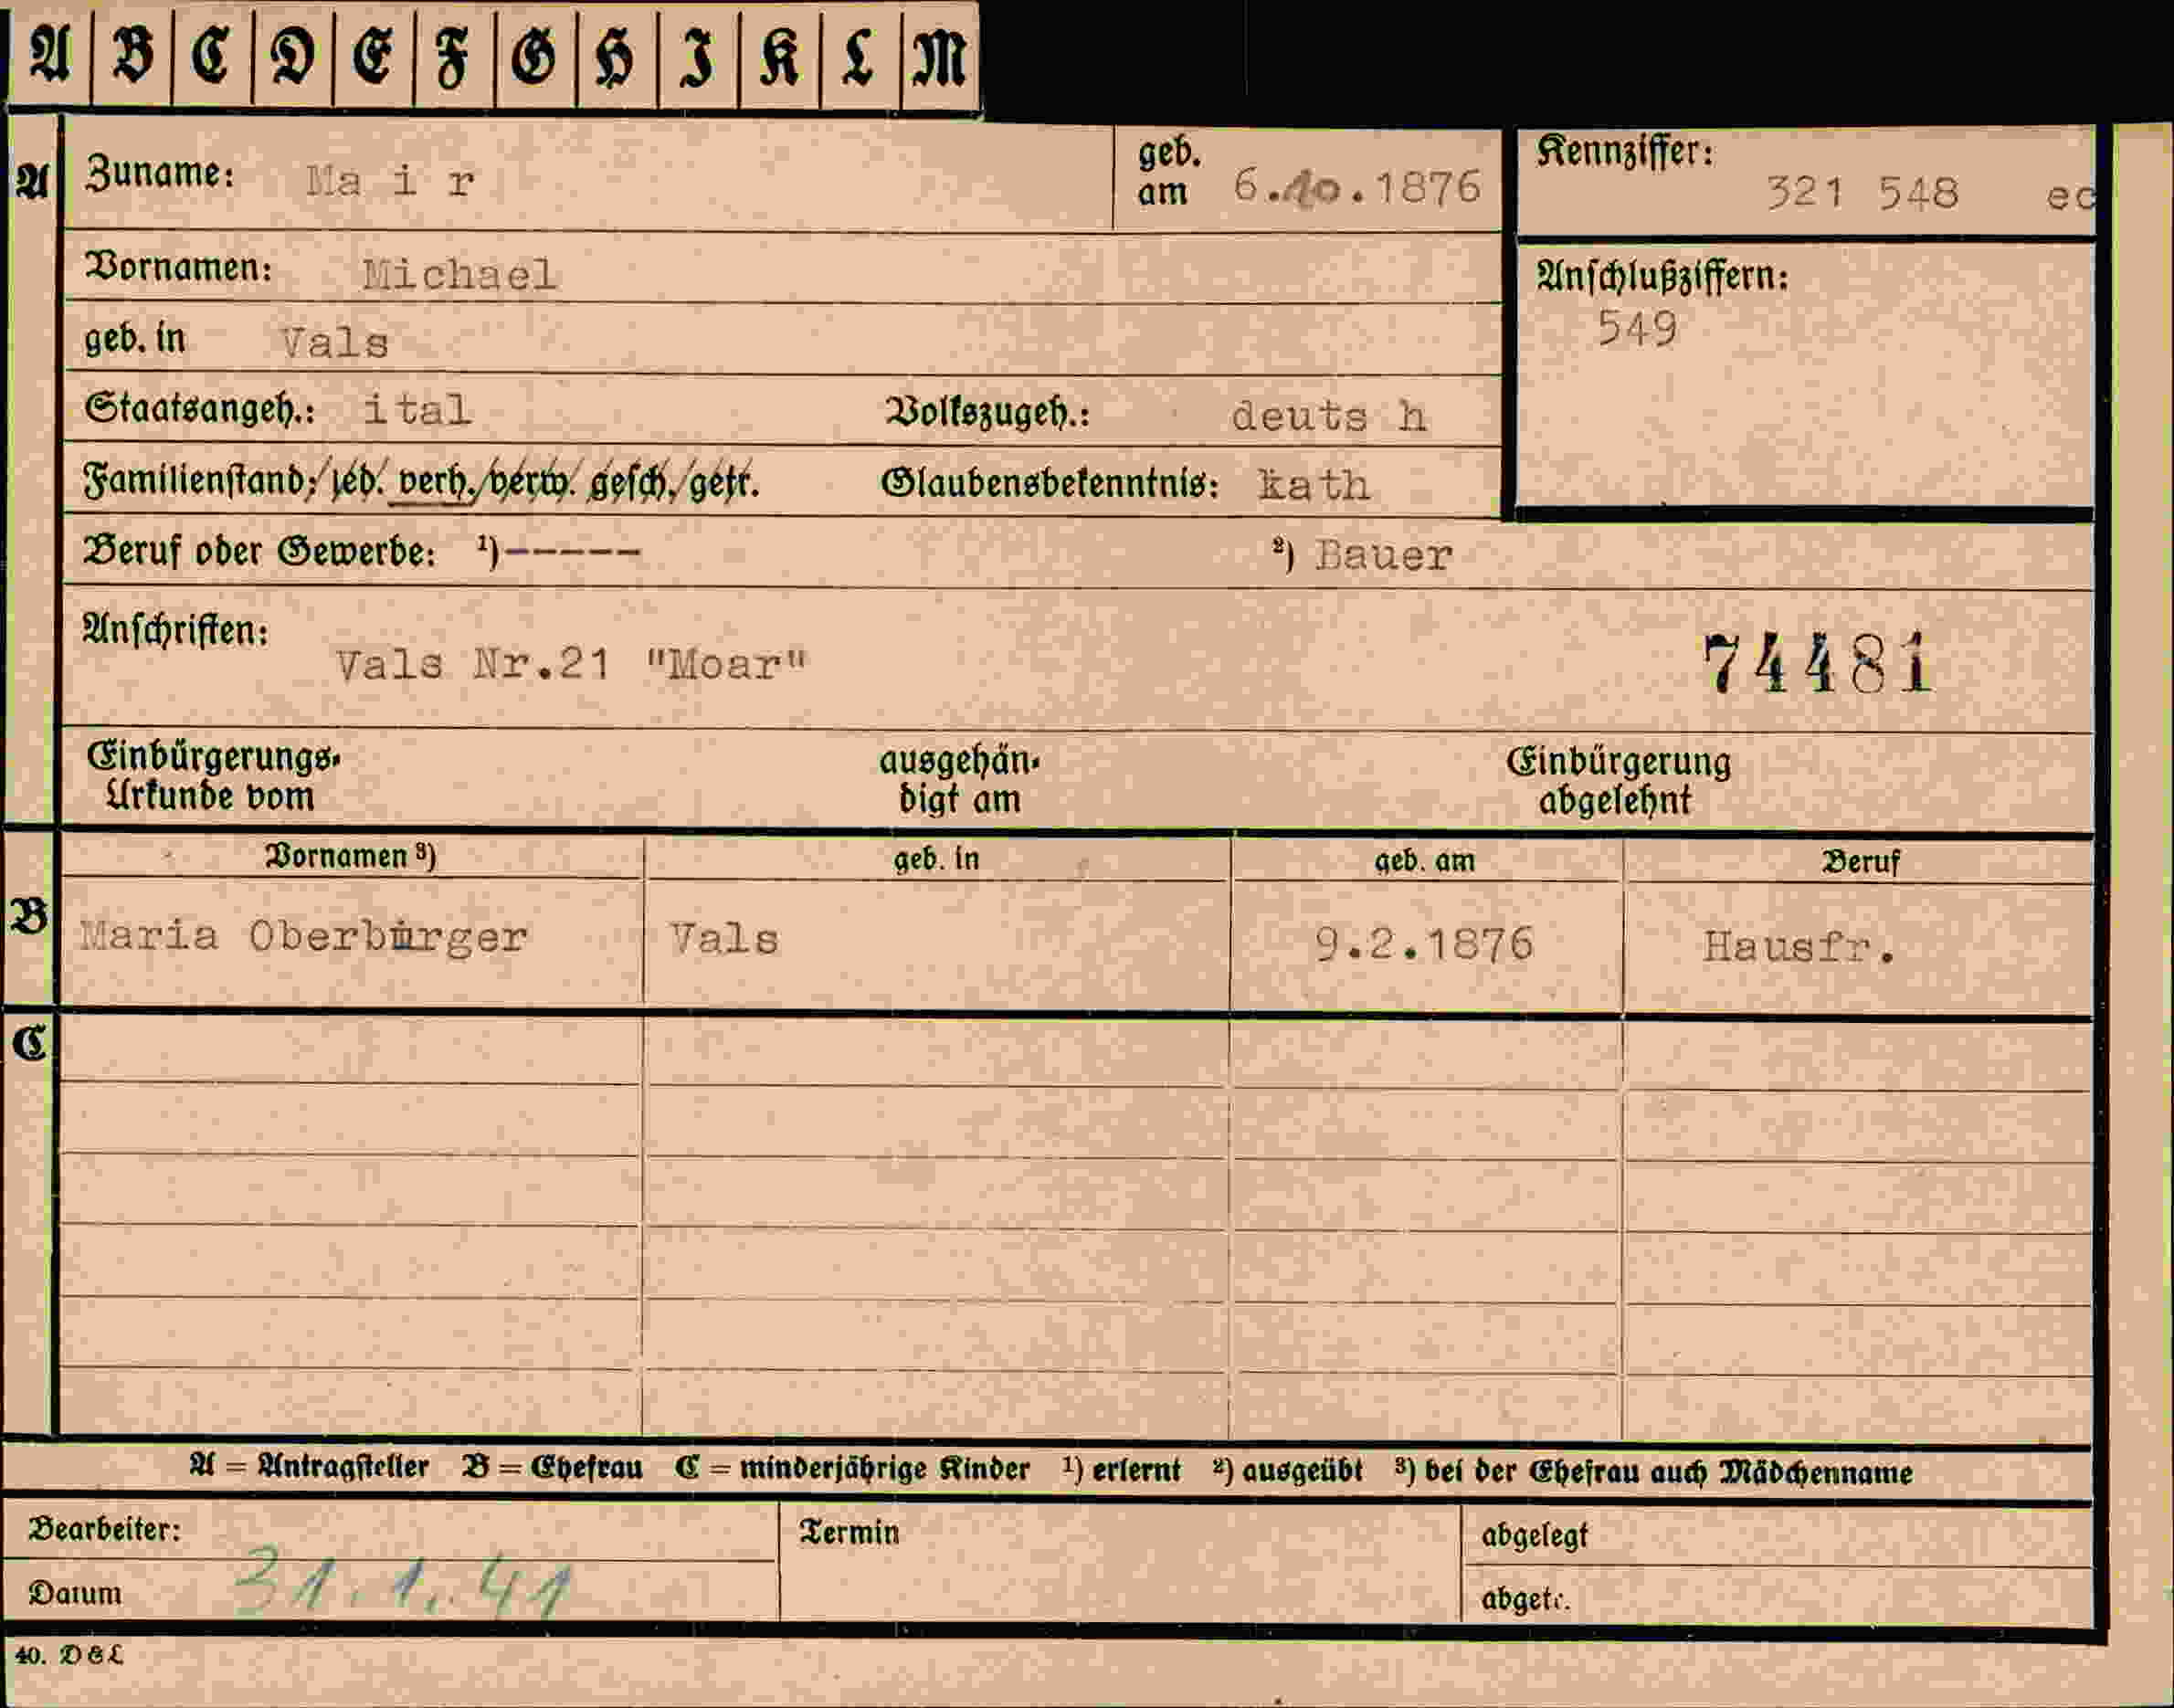 A B C D E F G H I K L M
A Zuname: Ma i r geb. am 6.10.1876 Kennziffer: 321 548 ec
Vornamen: Michael Anschlußziffern:
geb. in Vals 549
Staatsangeh.: ital Volkszugeh.: deuts h
Familienstand: led. verh. verw. gesch. getr. Glaubensbekenntnis: kath
Beruf oder Gewerbe: ¹)----- ²) Bauer
Anschriften:
Vals Nr.21 "Moar" 74481
Einbürgerungs- ausgehän- Einbürgerung
Urkunde vom digt am abgelehnt
Vornamen ³) geb. in geb. am Beruf
B Maria Oberbürger Vals 9.2.1876 Hausfr.
C
A = Antragsteller B = Ehefrau C = minderjährige Kinder ¹) erlernt ²) ausgeübt ³) bei der Ehefrau auch Mädchenname
Bearbeiter: Termin abgelegt
Datum 31.1.41 abgetr.
40. D&L